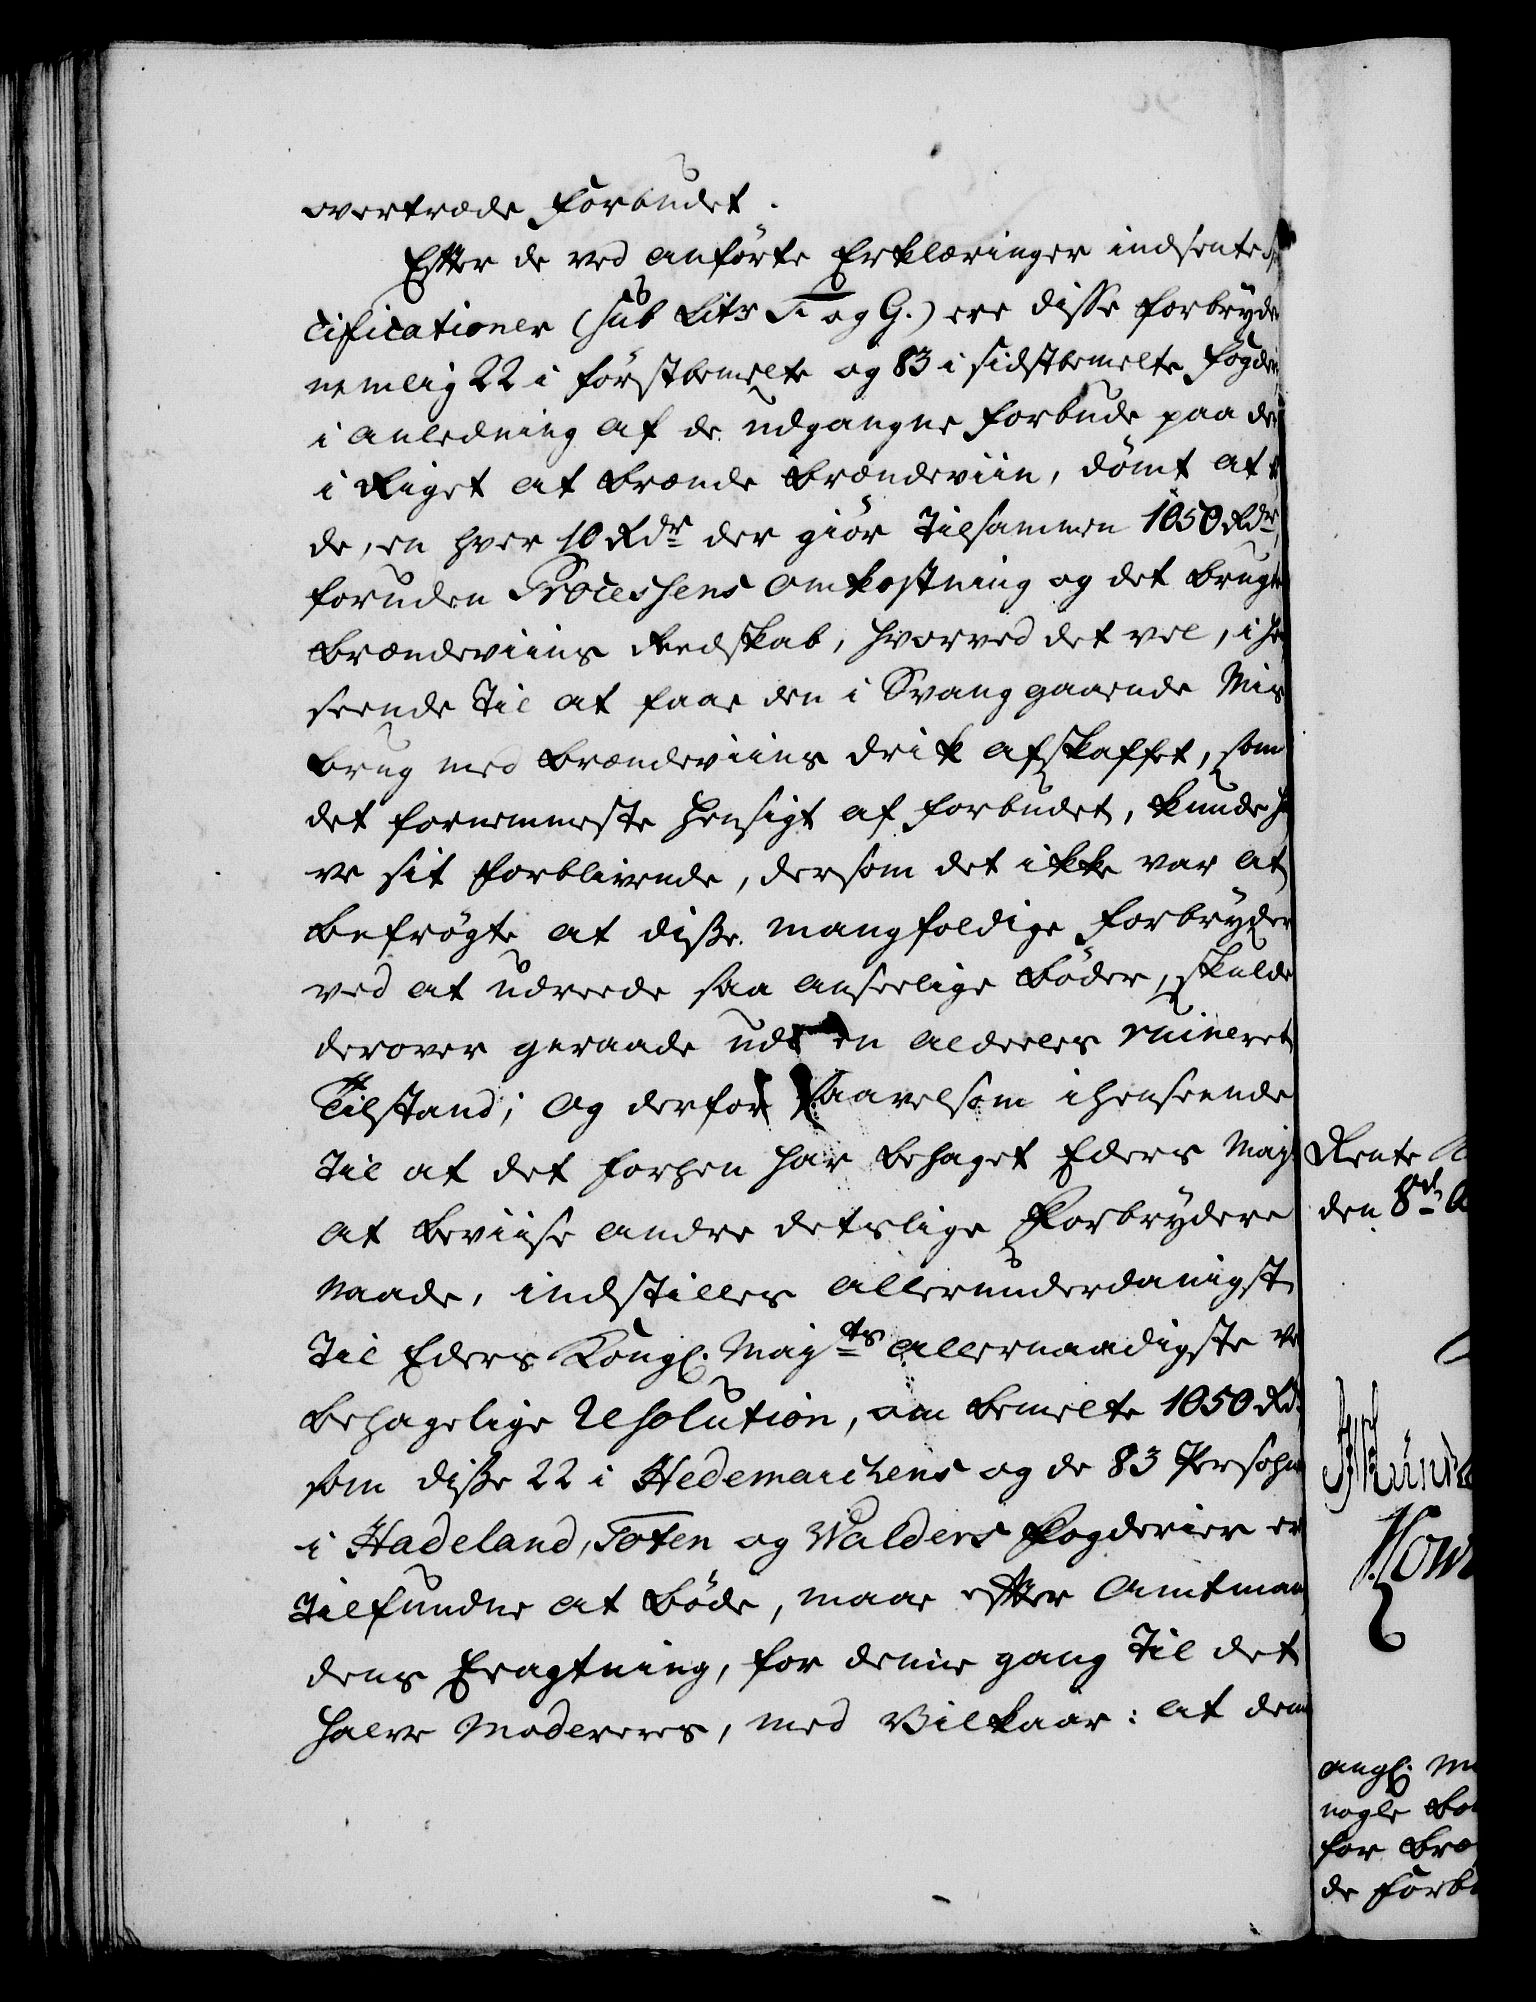 overtræde Forbudet.
Efter de ved anførte Erklæringer indsente
cificationer (sub Litr F og G.) ere disse forbryde
nemlig 22 i førstbemelte og 83 i sidstbemelte fogder
i anledning af de udgangne forbude paa de
i Riget at brænde brændeviin, dømt at
de, en hver 10 Rdr der giør tilsammen 1050 Rdr,
foruden Processens omkostning og det brugte
brændeviins Redskab, hvorved det vel, i hen
seende til at faae den i Svang gaaende Mis
brug med brændeviins drik afskaffet, som
det fornemmeste hensigt af forbudet, kunde ha
ve sit forblivende, dersom det ikke var at
befrøgte at diße mangfoldige forbryder
ved at udreede saa anseelige bøder, skulde
derover geraade udi en aldeeles ruineret
Tilstand; og derfor saavelsom i henseende
til at det forhen har behaget Eders Maj:
at beviise andre deslige Forbrydere
Naade, indstilles allerunderdanigst
til Eders Kongl. Majts allernaadigste vel
behagelige Resolution, om bemelte 1050 Rd:
som diße 22 i Hedemarchens og de 83 Persohner
i Hadeland, Toten og Walders Fogderier er
tilfundne at bøde, maae efter Amtman
dens Eragtning, for denne gang til det
halve Modereres, med Vilkaar: at dem
Rente
den 8de
angl.
nogle
for
de Forb